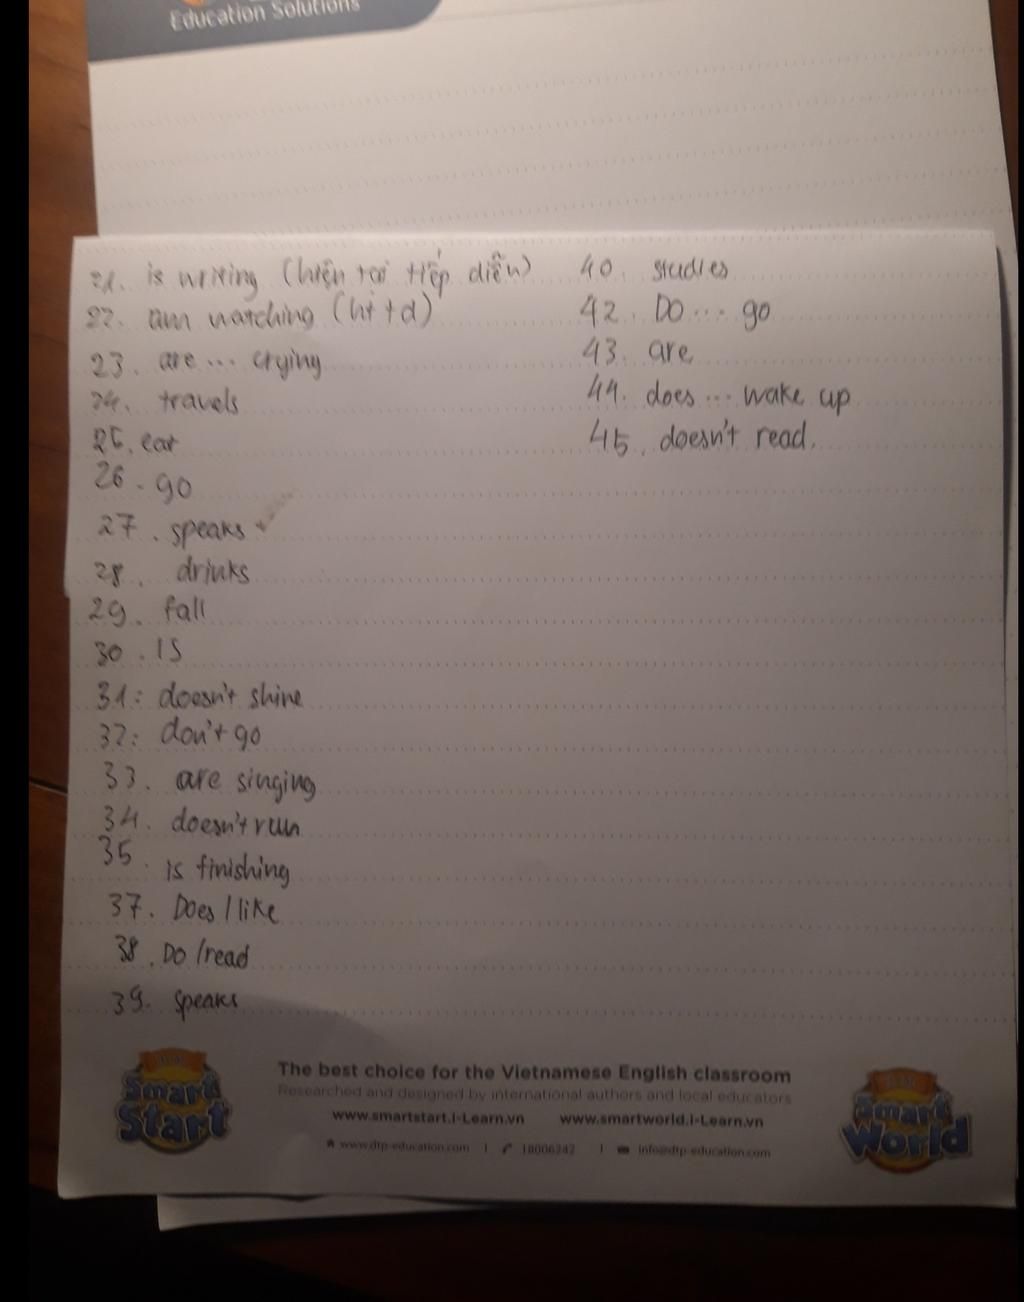 Education Solutions
21. is writing (hiện tại tiếp diễn)
22. am watching (httd)
23. are ... crying
24. travels
25. eat
26. go
27. speaks
28. drinks
29. fall
30. IS
31: doesn't shine
32: don't go
33. are singing
34. doesn't run
35. is finishing
37. Does / like
38. Do / read
39. speaks
40. studies
42. Do ... go
43. are
44. does ... wake up
45. doesn't read.
Smart
Start
The best choice for the Vietnamese English classroom
Researched and designed by international authors and local educators
www.smartstart.i-Learn.vn www.smartworld.i-Learn.vn
www.dtp-education.com | 18006242 | info@dtp-education.com
Smart
World